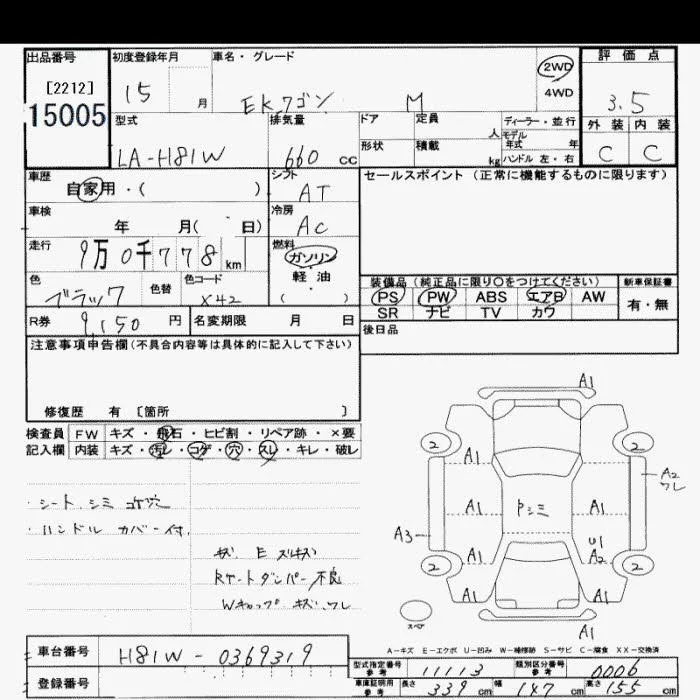 出品番号 初度登録年月 車名・グレード 評価点
[2212] 15 月 EKワゴン M 2WD 4WD 3.5
15005
型式 排気量 ドア 定員 人 ディーラー・並行 外装 内装
モデル年式 年
LA-H81W 660 cc 形状 積載 kg ハンドル 左・右 C C
車歴 自家用・( ) シフト AT セールスポイント (正常に機能するものに限ります)
車検 年 月( 日) 冷房 AC
走行 9万0千778 km 燃料 ガソリン
軽・油
( )
色 ブラック 色替 色コード X42
装備品 (純正品に限り〇をつけてください) 新車保証書
PS PW ABS エアB AW 有・無
SR ナビ TV カワ
R券 9,150 円 名変期限 月 日 後日品
注意事項申告欄(不具合内容等は具体的に記入して下さい)
修復歴 有 〔箇所 〕
検査員 FW キズ・飛石・ヒビ割・リペア跡・×要
記入欄 内装 キズ・汚レ・コゲ・穴・スレ・キレ・破レ
・シート シミ コゲ穴
・ハンドル カバー付
Rゲートダンパー不良
Wキャップ キズ、ワレ
A1
2 2
A1
A2
ワレ
A1 A1
A3
A1 U1
A2
2 2
A1 A1
A1
スペア
A-キズ E-エクボ U-凹み W-補修跡 S-サビ C-腐食 XX-交換済
車台番号 H81W-0369319
登録番号
型式指定番号 参考 11113 類別区分番号 参考 0006
車庫証明用 参考 長さ 339 cm 幅 147 cm 高さ 155 cm